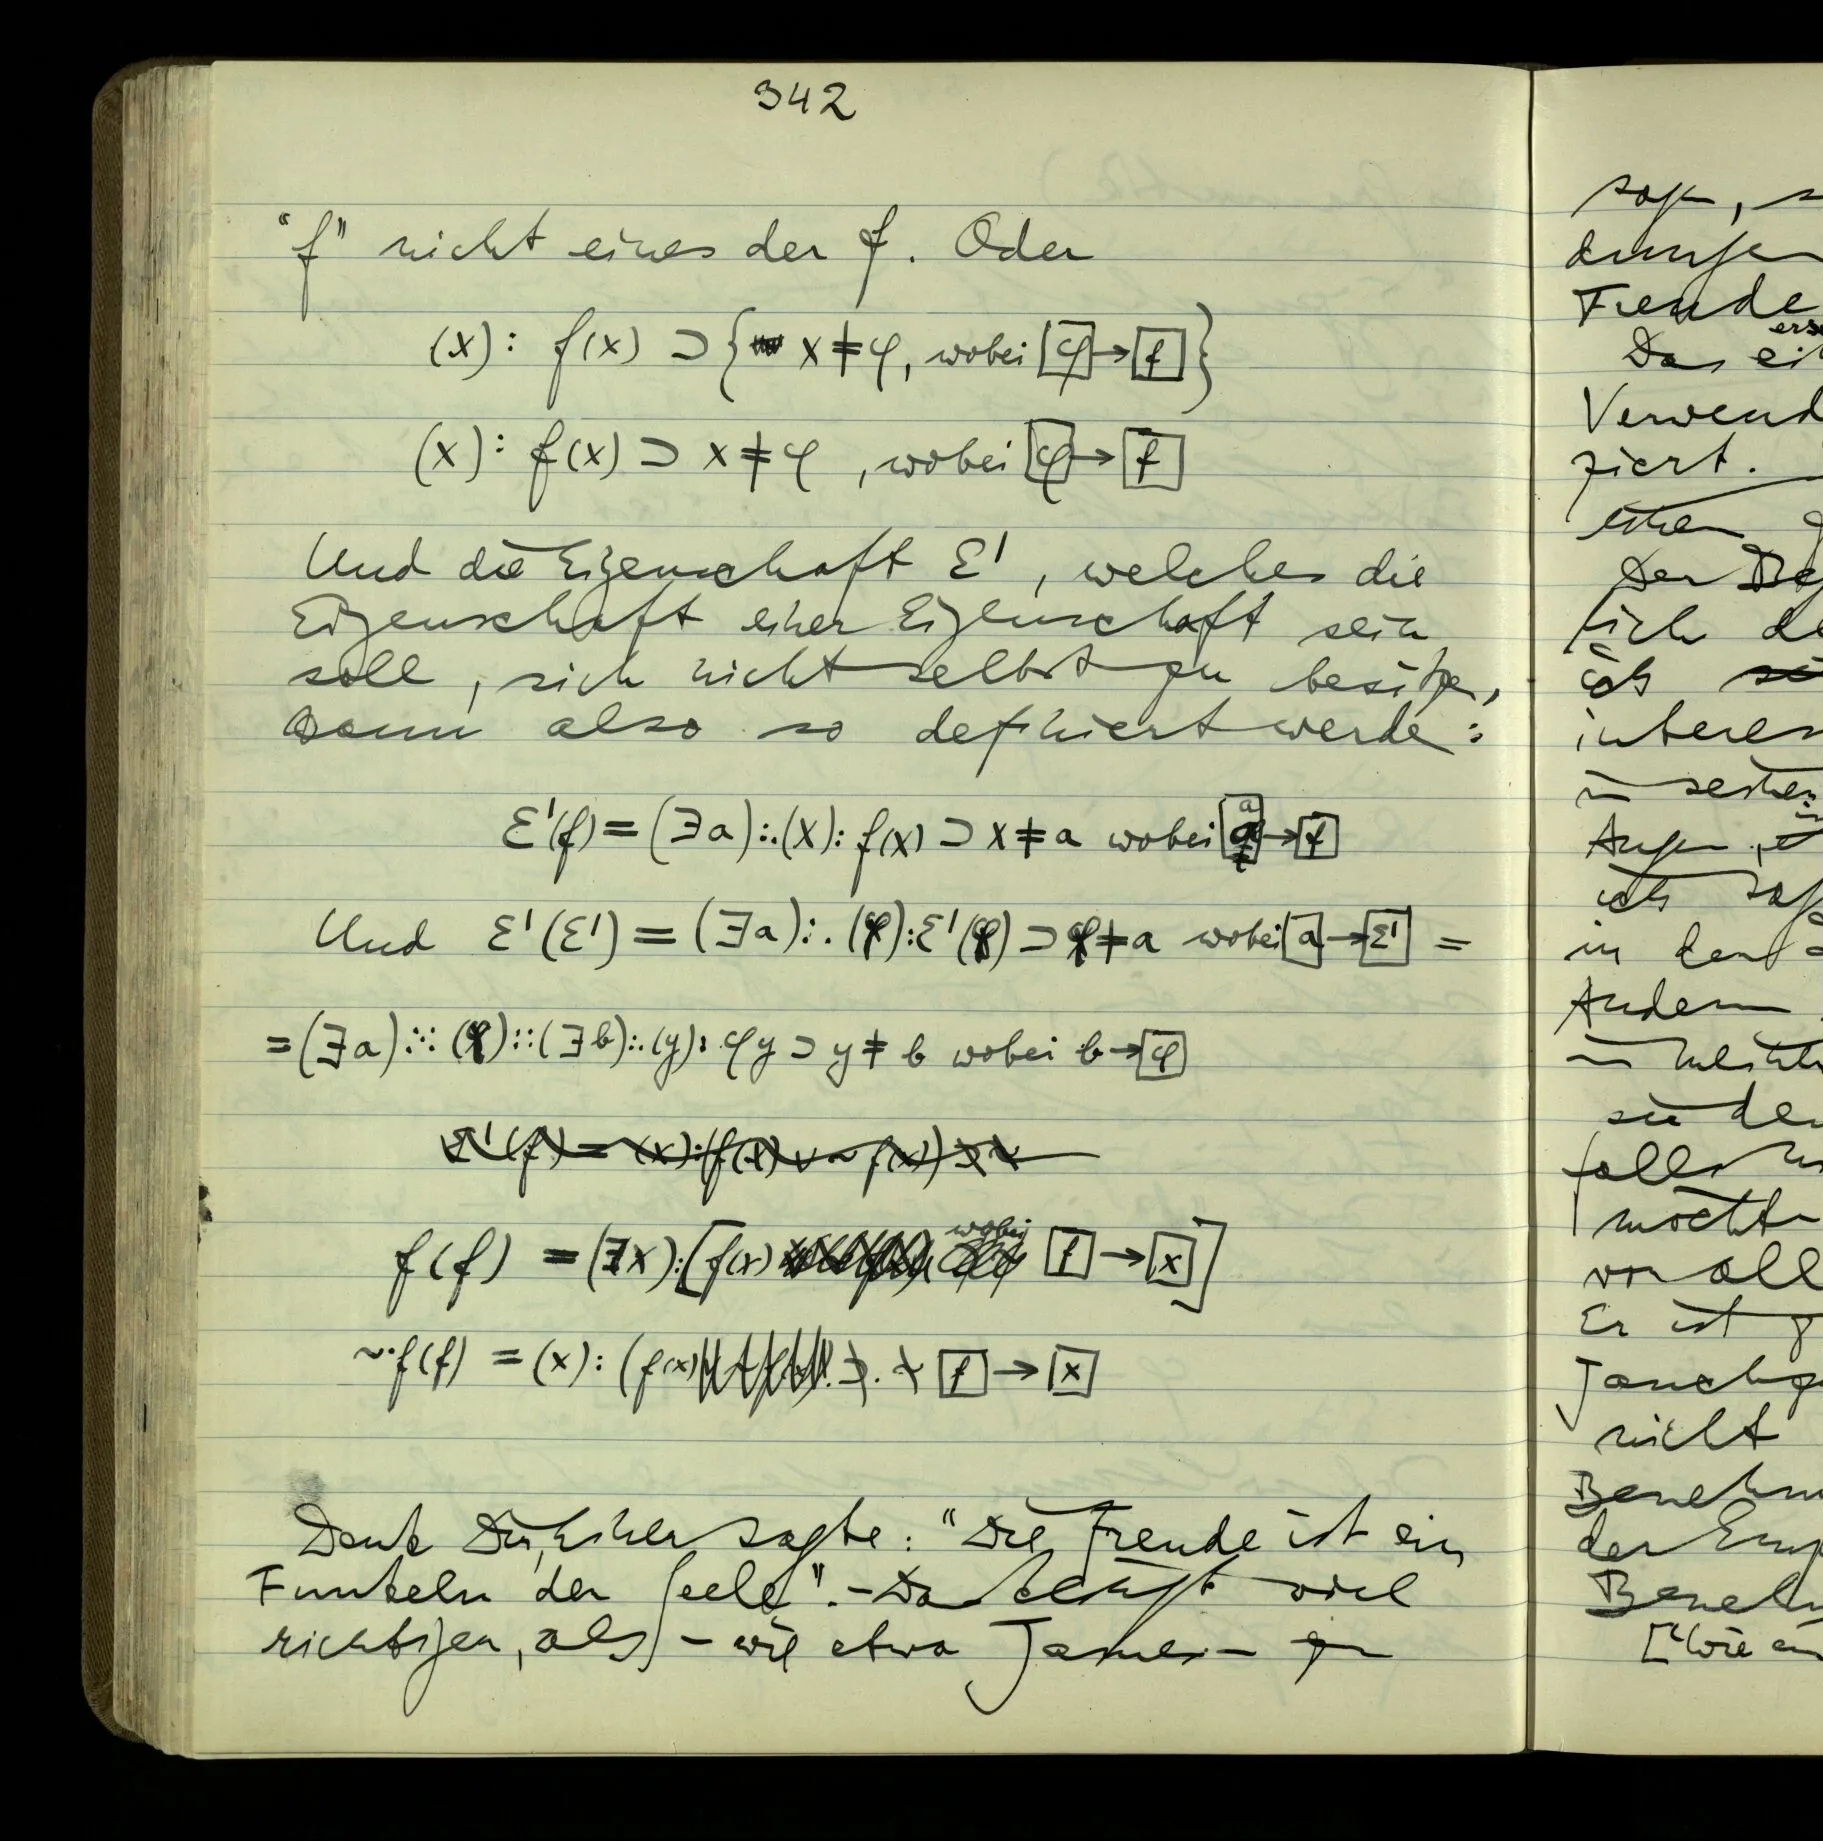 342
"f" nicht eines der f. Oder
(x): f(x) ⊃ { x ≠ φ, wobei φ → f }
(x): f(x) ⊃ x ≠ φ, wobei φ → f
Und die Eigenschaft Ɛ', welches die
Eigenschaft einer Eigenschaft sein
soll, sich nicht selbst zu besitzen,
kann also so definiert werde:
Ɛ'(f) = (∃a):.(x): f(x) ⊃ x ≠ a wobei a → f
Und Ɛ'(Ɛ') = (∃a):.(φ):Ɛ'(φ) ⊃ φ ≠ a wobei a → Ɛ' =
= (∃a)∷(φ)::(∃b):.(y): φy ⊃ y ≠ b wobei b → φ
Ɛ'(f) = (x):(f(x) ∨ ~f(x)) ⊃ x
f(f) = (∃x):[f(x) wobei f → x]
~.f(f) = (x): (f(x) .⊃. f → x
Denk Dir, Einer sagte: "Die Freude ist ein
Funkeln der Seele". – Das klingt viel
richtiger, als – wie etwa James – zu
sagen,
Freude
Das
Verwend
ziert.
einen
Der Beg
sich de
ich
interes
in seinen
Augen,
ich
in den
Andern
in
zu den
falls
möchte
vor all
Er ist
nicht
Benehm
der
Benehm
["Wie ein